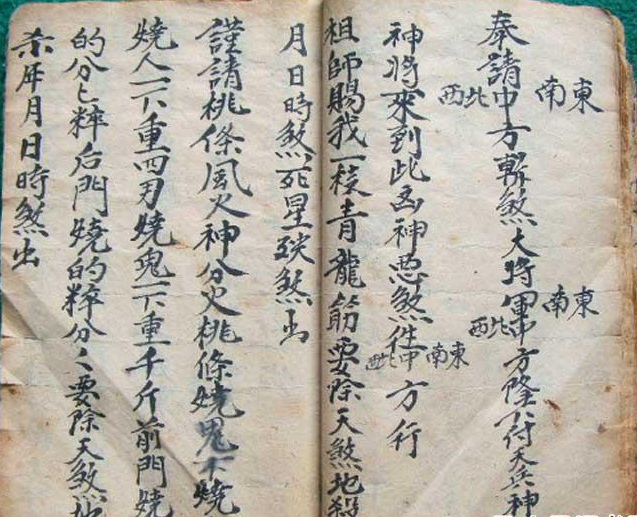 奉請東南中西北方斬煞大將軍東南中西北方降下付天兵神
神將來到此凶神惡煞作東南中西北方行
祖師賜我一枝青龍筋要除天煞地殺
月日時煞死星殃煞出
謹請桃條風火神分火桃條燒鬼下燒
燒人一下重四刃燒鬼一下重千斤前門燒
的分分粹后門燒的粹分々要除天煞地
杀年月日時煞出